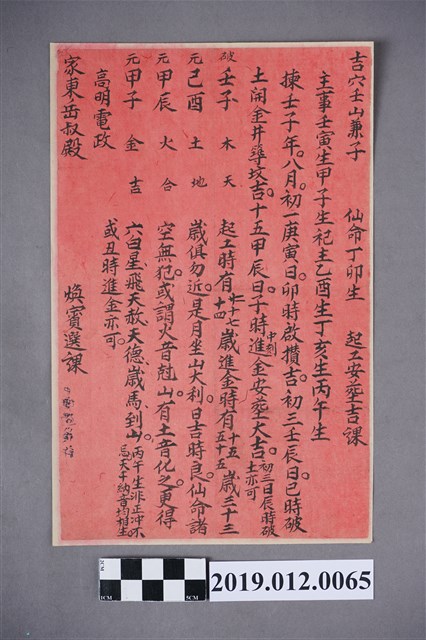 吉穴壬山兼子 仙命丁卯生 起工安塋吉課
主事壬寅生甲子生祀主乙酉生丁亥生丙午生
揀壬子年。八月。初一庚寅日。卯時啟攢吉。初三壬辰日。巳時破
土開金井築坟吉。十五甲辰日。子時中刻進金安塋大吉。初三日辰時破土亦可
破壬子 木 天 起工時有廿七十四歲進金時有十五五十五歲三十三
元己酉 土 地 歲俱勿近。是月坐山大利。日吉時良。仙命諸
元甲辰 火 合 空無犯。或謂火音尅山。有土音化之。更得
元甲子 金 吉 六白星飛天赦天德歲馬到山。丙午生非正冲不忌天干納音均相生
高明電政 或丑時進金亦可。
家東岳叔殿 煥賓選課
2019.012.0065
1CM
5CM